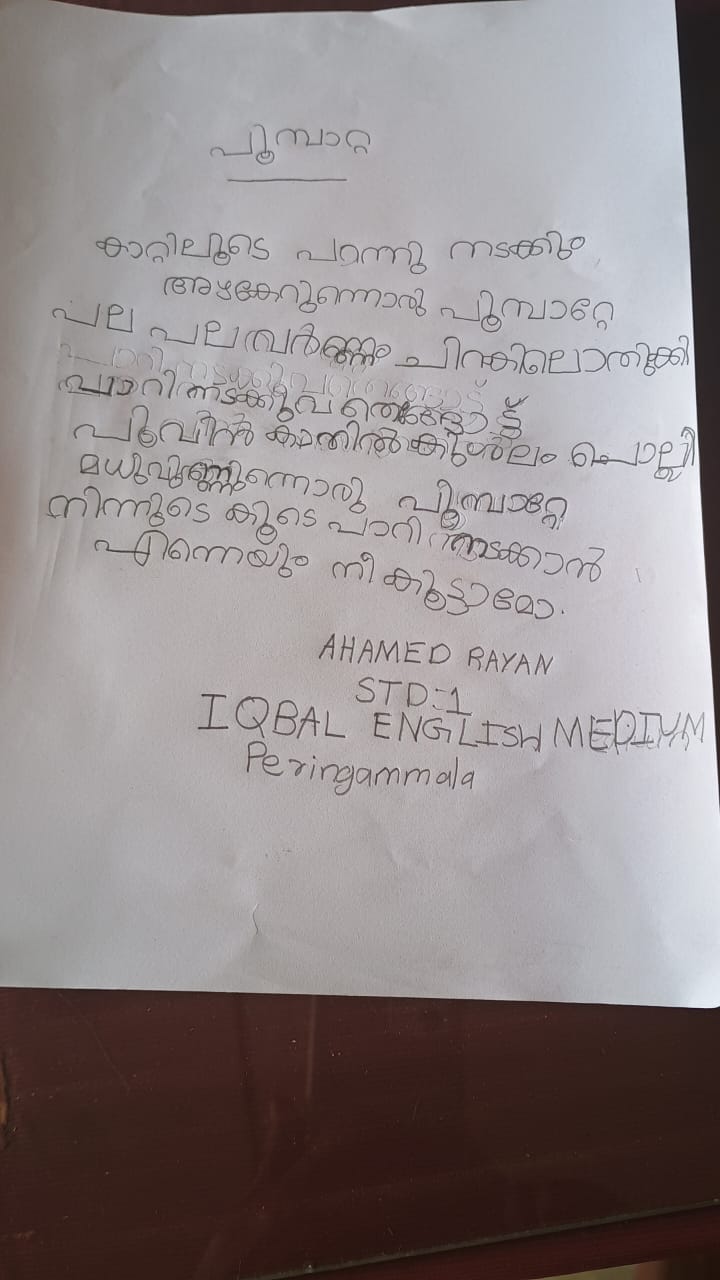 പൂമ്പാറ്റ
കാറ്റിലൂടെ പറന്നു നടക്കും
അഴകേറുന്നൊരു പൂമ്പാറ്റേ
പല പലവർണ്ണം ചിറകിലൊതുക്കി
പാറിനടക്കുവതെങ്ങോട്ട്
പൂവിൻ കാതിൽ കുശലം ചൊല്ലി
മധുവുണ്ണുന്നൊരു പൂമ്പാറ്റേ
നിന്നുടെ കൂടെ പാറി നടക്കാൻ
എന്നെയും നീ കൂട്ടാമോ.
AHAMED RAYAN
STD:1
IQBAL ENGLISH MEDIUM
Peringammala